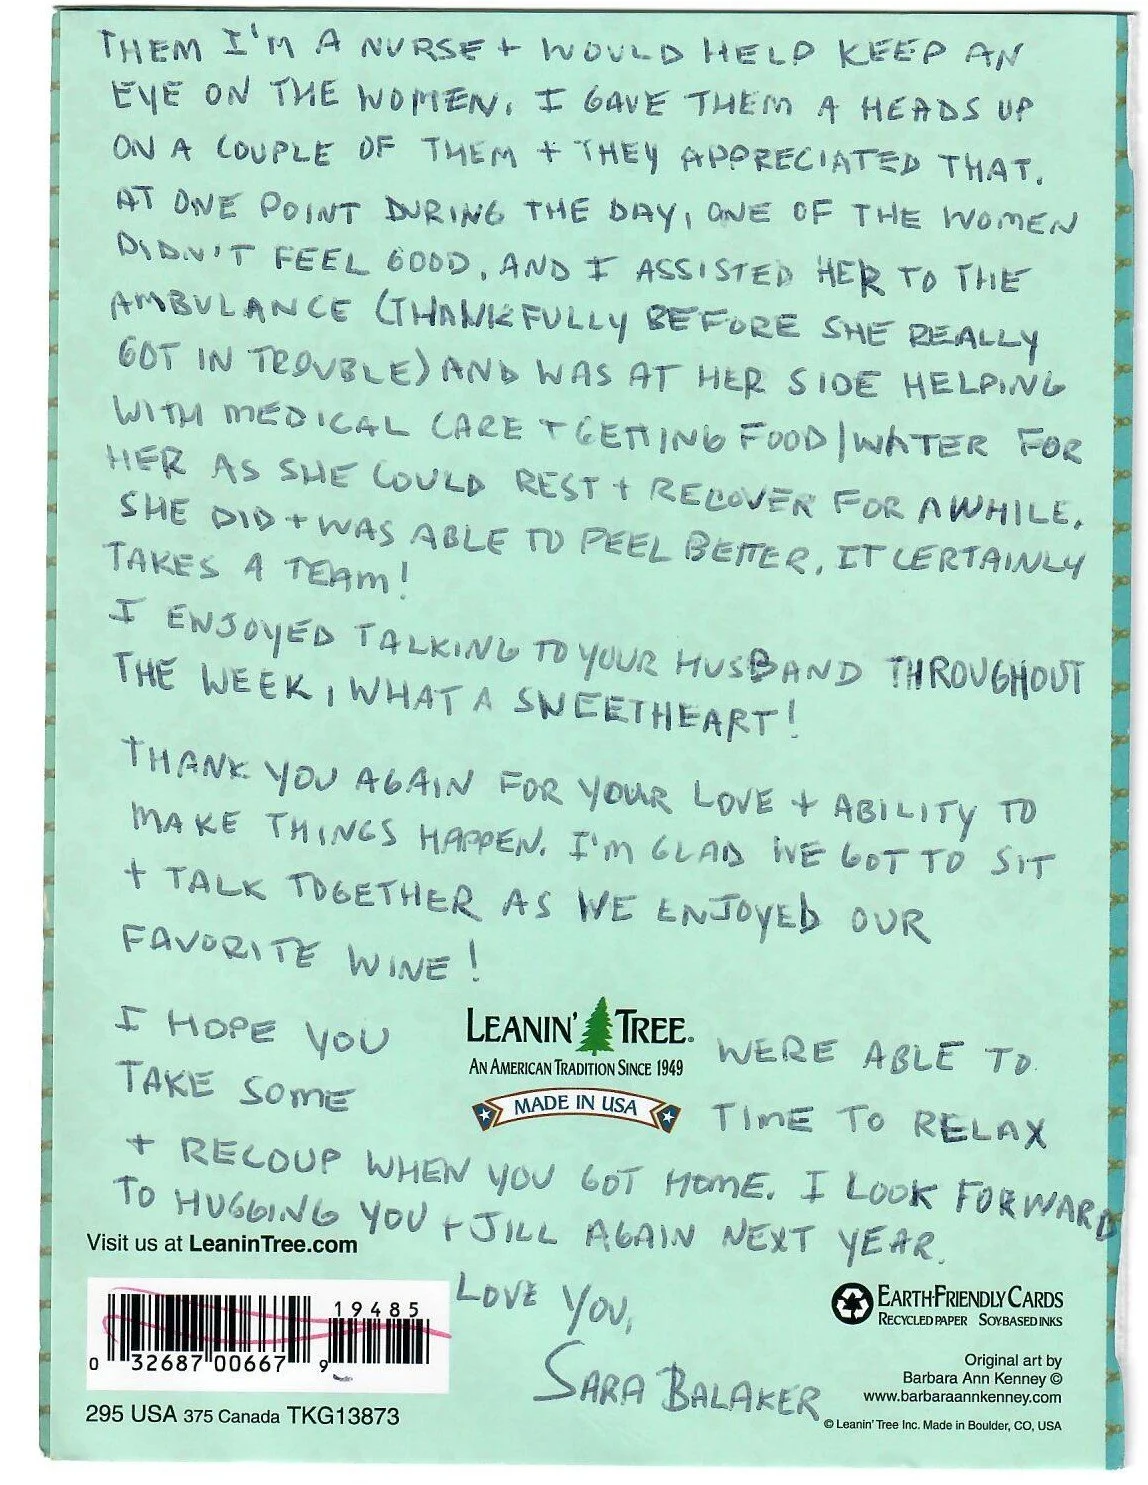 THEM I'M A NURSE + WOULD HELP KEEP AN
EYE ON THE WOMEN. I GAVE THEM A HEADS UP
ON A COUPLE OF THEM + THEY APPRECIATED THAT.
AT ONE POINT DURING THE DAY, ONE OF THE WOMEN
DIDN'T FEEL GOOD, AND I ASSISTED HER TO THE
AMBULANCE (THANKFULLY BEFORE SHE REALLY
GOT IN TROUBLE) AND WAS AT HER SIDE HELPING
WITH MEDICAL CARE + GETTING FOOD/WATER FOR
HER AS SHE COULD REST + RECOVER FOR AWHILE.
SHE DID + WAS ABLE TO FEEL BETTER. IT CERTAINLY
TAKES A TEAM!
I ENJOYED TALKING TO YOUR HUSBAND THROUGHOUT
THE WEEK, WHAT A SWEETHEART!
THANK YOU AGAIN FOR YOUR LOVE + ABILITY TO
MAKE THINGS HAPPEN. I'M GLAD WE GOT TO SIT
+ TALK TOGETHER AS WE ENJOYED OUR
FAVORITE WINE!
I HOPE YOU WERE ABLE TO
TAKE SOME TIME TO RELAX
+ RECOUP WHEN YOU GOT HOME. I LOOK FORWARD
TO HUGGING YOU + JILL AGAIN NEXT YEAR.
LOVE YOU,
SARA BALAKER
LEANIN' TREE.
AN AMERICAN TRADITION SINCE 1949
MADE IN USA
Visit us at LeaninTree.com
19485
0 32687 00667 9
295 USA 375 Canada TKG13873
EARTH-FRIENDLY CARDS
RECYCLED PAPER SOY BASED INKS
Original art by
Barbara Ann Kenney ©
www.barbaraannkenney.com
© Leanin' Tree Inc. Made in Boulder, CO, USA